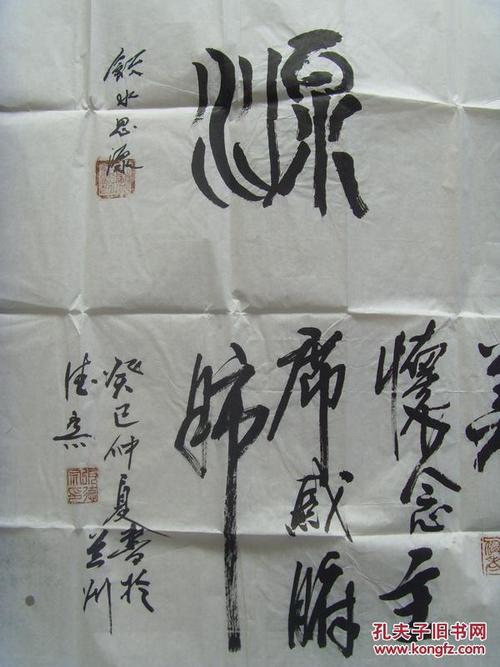 源
飲水思源
懷念主
席感腑
肺
癸巳仲夏書於
兰州
孔夫子旧书网
www.kongfz.com